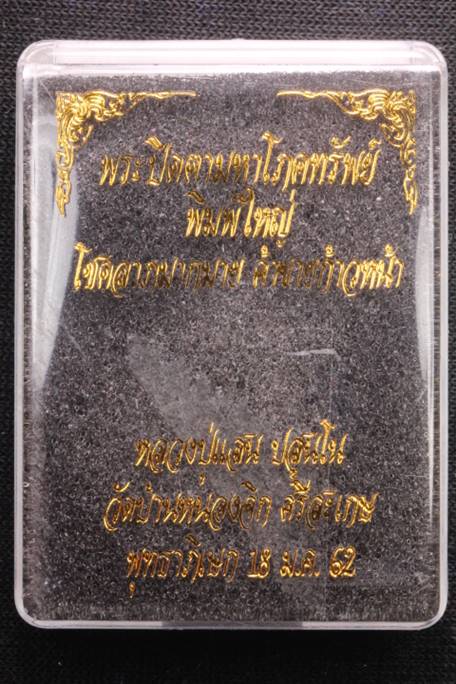 พระปิดตามหาโภคทรัพย์
พิมพ์ใหญ่
โชคลาภมากมาย ค้าขายก้าวหน้า
หลวงปู่แสน ปสนฺโน
วัดบ้านหนองจิก ศรีสะเกษ
พุทธาภิเษก 18 ม.ค. 62